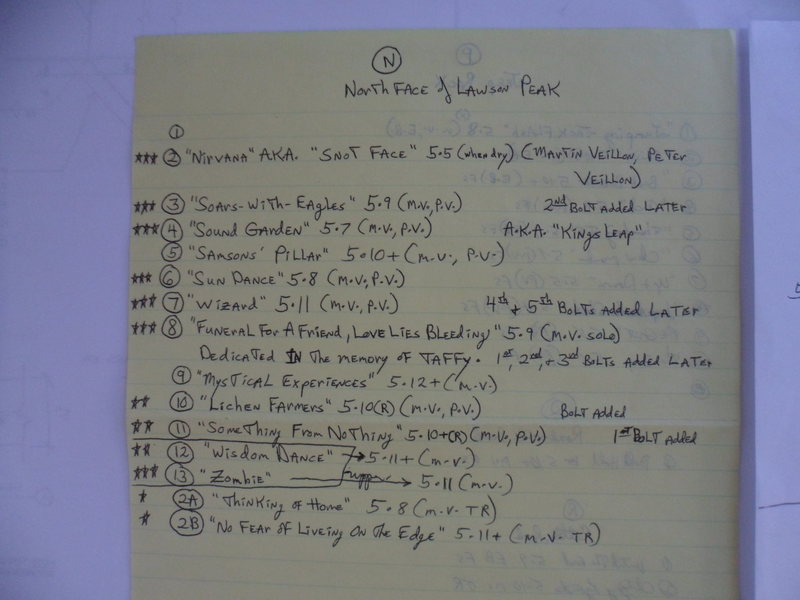 N
North Face of Lawson Peak
1
*** 2 "Nirvana" A.K.A. "Snot Face" 5.5 (when dry) (Martin Veillon, Peter
Veillon)
*** 3 "Soars-With-Eagles" 5.9 (M.V., P.V.) 2nd Bolt Added Later
*** 4 "Sound Garden" 5.7 (M.V., P.V.) A.K.A. "Kings Leap"
5 "Samsons' Pillar" 5.10+ (M.V., P.V.)
*** 6 "Sun Dance" 5.8 (M.V., P.V.)
*** 7 "Wizard" 5.11 (M.V., P.V.) 4th & 5th Bolts Added Later
*** 8 "Funeral For A Friend, Love Lies Bleeding" 5.9 (M.V. solo)
Dedicated In the memory of Taffy. 1st, 2nd, + 3rd Bolts Added Later
9 "Mystical Experiences" 5.12+ (M.V.)
** 10 "Lichen Farmers" 5.10(R) (M.V., P.V.) Bolt Added
** 11 "Something From Nothing" 5.10+(R) (M.V., P.V.) 1st Bolt Added
** 12 "Wisdom Dance" → 5.11+ (M.V.)
*** 13 "Zombie" → 5.11 (M.V.)
* 2A "Thinking of Home" 5.8 (M.V. TR)
* 2B "No Fear of Liveing On the Edge" 5.11+ (M.V. TR)